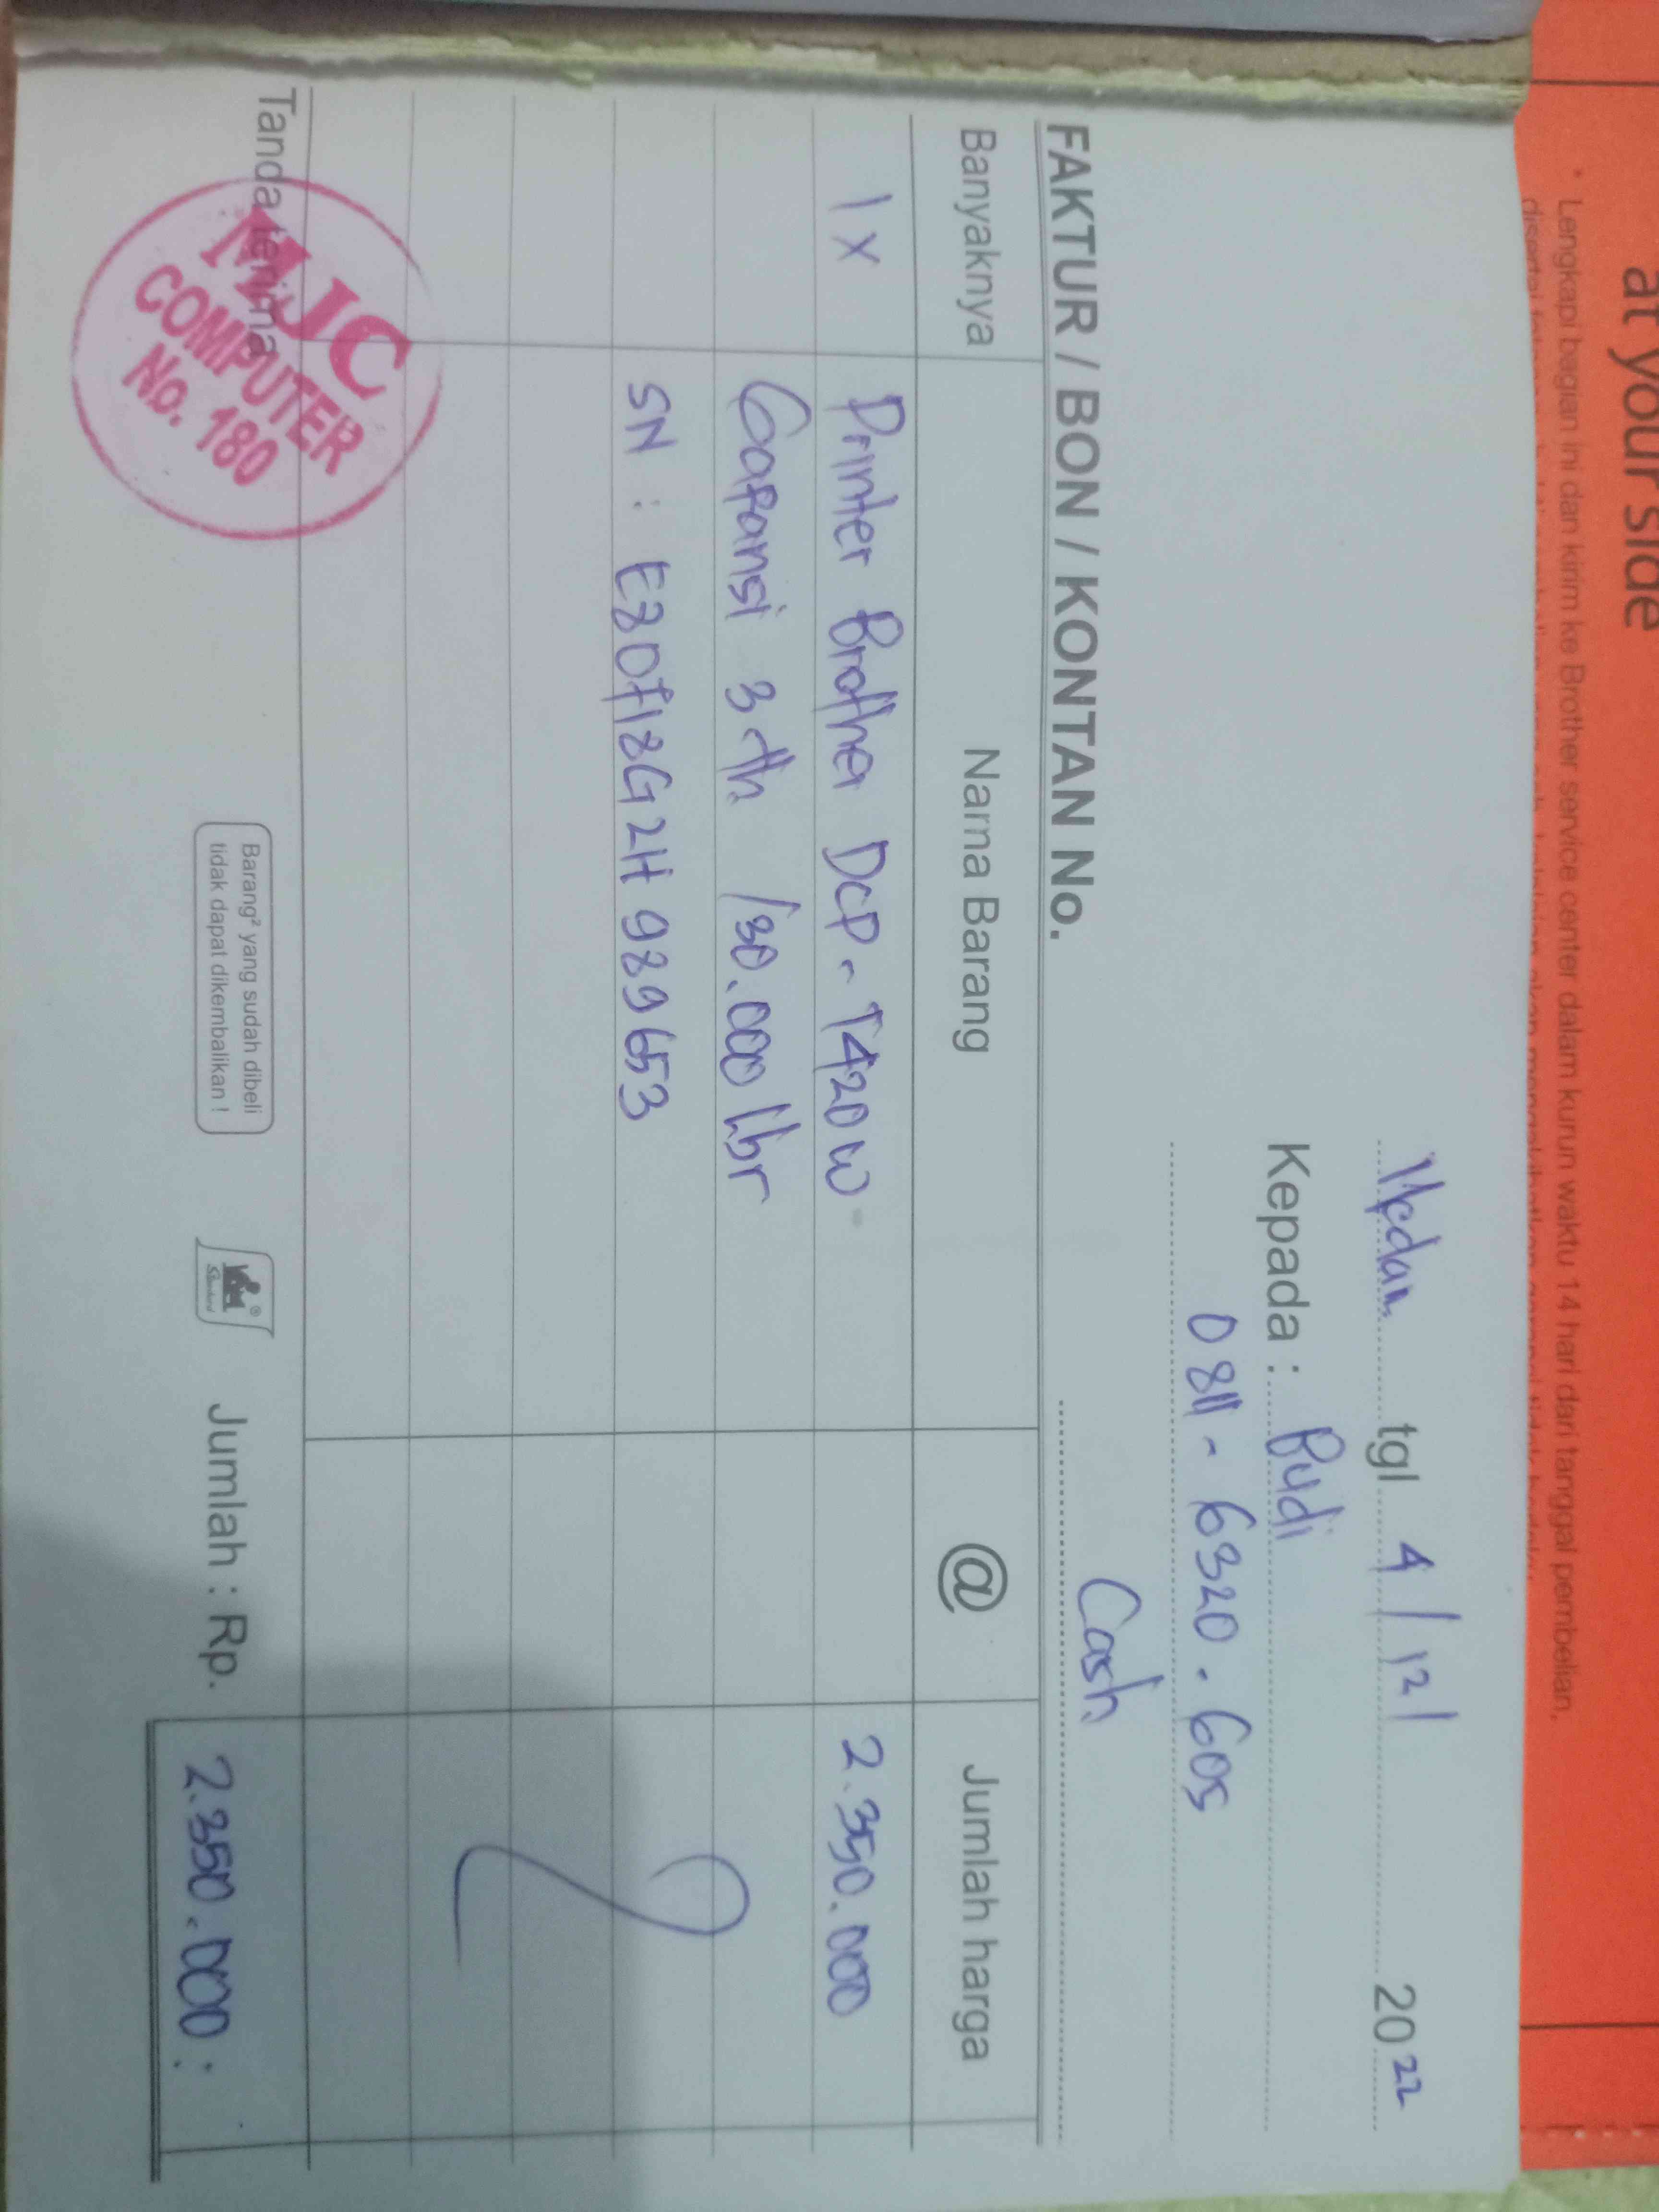 at your side
* Lengkapi bagian ini dan kirim ke Brother service center dalam kurun waktu 14 hari dari tanggal pembelian,
Medan tgl 4 / 12 / 2022
Kepada : Budi
0811 - 6320 - 605
FAKTUR / BON / KONTAN No. Cash
Banyaknya Nama Barang @ Jumlah harga
1 x Printer Brother DCP - T420W 2.350.000
Garansi 3 th / 30.000 lbr
SN : E80F18G2H989653
Tanda terima
MJC
COMPUTER
No. 180
Barang² yang sudah dibeli
tidak dapat dikembalikan !
Jumlah : Rp. 2.350.000